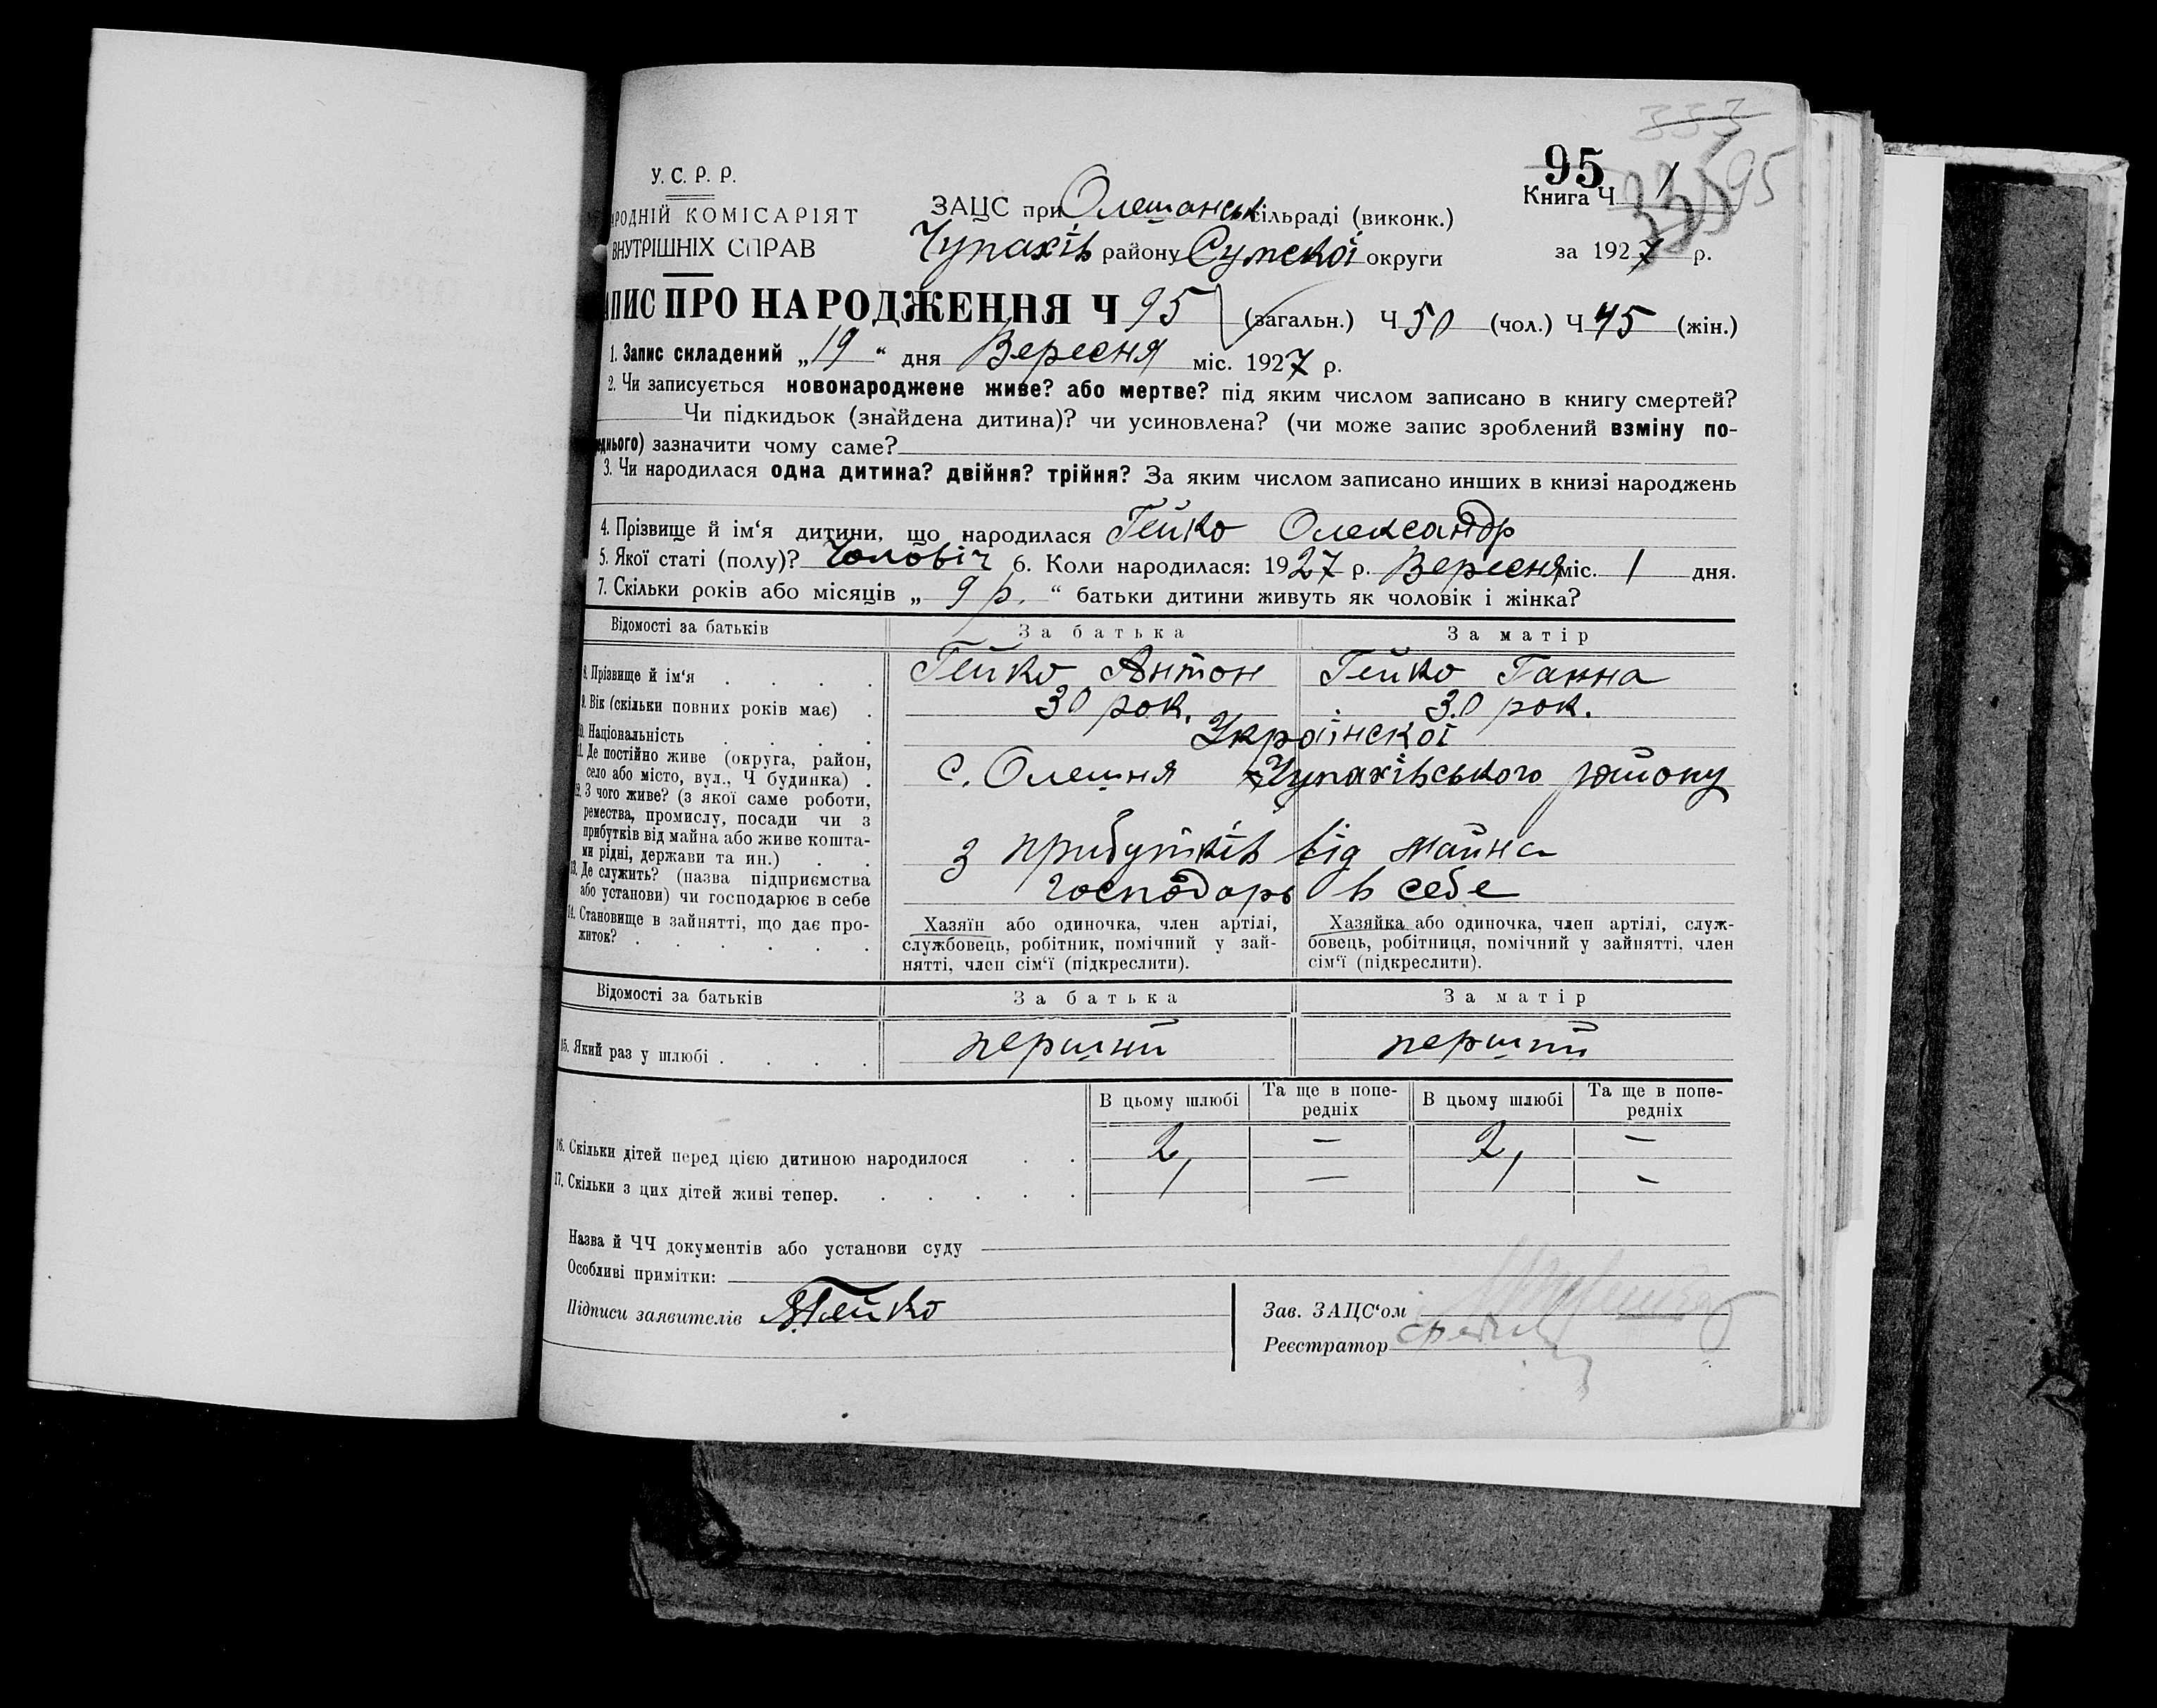 333
95
У. С. Р. Р.
РОДНІЙ КОМІСАРІЯТ
ВНУТРІШНІХ СПРАВ
ЗАЦС при Олешанськ сільраді (виконк.)
Чупахів району Сумскої округи
Книга Ч 1 335 95
за 1927 р.
АПИС ПРО НАРОДЖЕННЯ Ч 95 (загальн.) Ч 50 (чол.) Ч 45 (жін.)
1. Запис складений „19“ дня Вересня міс. 1927 р.
2. Чи записується новонароджене живе? або мертве? під яким числом записано в книгу смертей?
Чи підкидьок (знайдена дитина)? чи усиновлена? (чи може запис зроблений взміну по-
еднього) зазначити чому саме?
3. Чи народилася одна дитина? двійня? трійня? За яким числом записано инших в книзі народжень
4. Прізвище й ім‘я дитини, що народилася Гейко Олександр
5. Якої статі (полу)? Чоловіч 6. Коли народилася: 1927 р. Вересня міс. 1 дня.
7. Скільки років або місяців „ 9 р. “ батьки дитини живуть як чоловік і жінка?
Відомості за батьків За батька За матір
8. Прізвище й ім‘я . . . . Гейко Антон Гейко Ганна
9. Вік (скільки повних років має) . 30 рок. 30 рок.
10. Національність . . . . Українскої
11. Де постійно живе (округа, район,
село або місто, вул., Ч будинка) . с. Олешня Чупахівського району
12. З чого живе? (з якої саме роботи,
ремества, промислу, посади чи з
прибутків від майна або живе кошта-
ми рідні, держави та ин.) . . з прибутків від майна
13. Де служить? (назва підприємства
або установи) чи господарює в себе господарь в себе
14. Становище в зайнятті, що дає про-
житок? . . . . . .
Хазяїн або одиночка, член артілі,
службовець, робітник, помічний у зай-
нятті, член сім‘ї (підкреслити).
Хазяйка або одиночка, член артілі, служ-
бовець, робітниця, помічний у зайнятті, член
сім‘ї (підкреслити).
Відомості за батьків За батька За матір
15. Який раз у шлюбі . . . . перший перший
В цьому шлюбі Та ще в попе-
редніх В цьому шлюбі Та ще в попе-
редніх
16. Скільки дітей перед цією дитиною народилося . . 2, — 2, —
17. Скільки з цих дітей живі тепер. . . . . . — -
Назва й ЧЧ документів або установи суду
Особливі примітки:
Підписи заявителів А. Гейко
Зав. ЗАЦС‘ом
Реєстратор